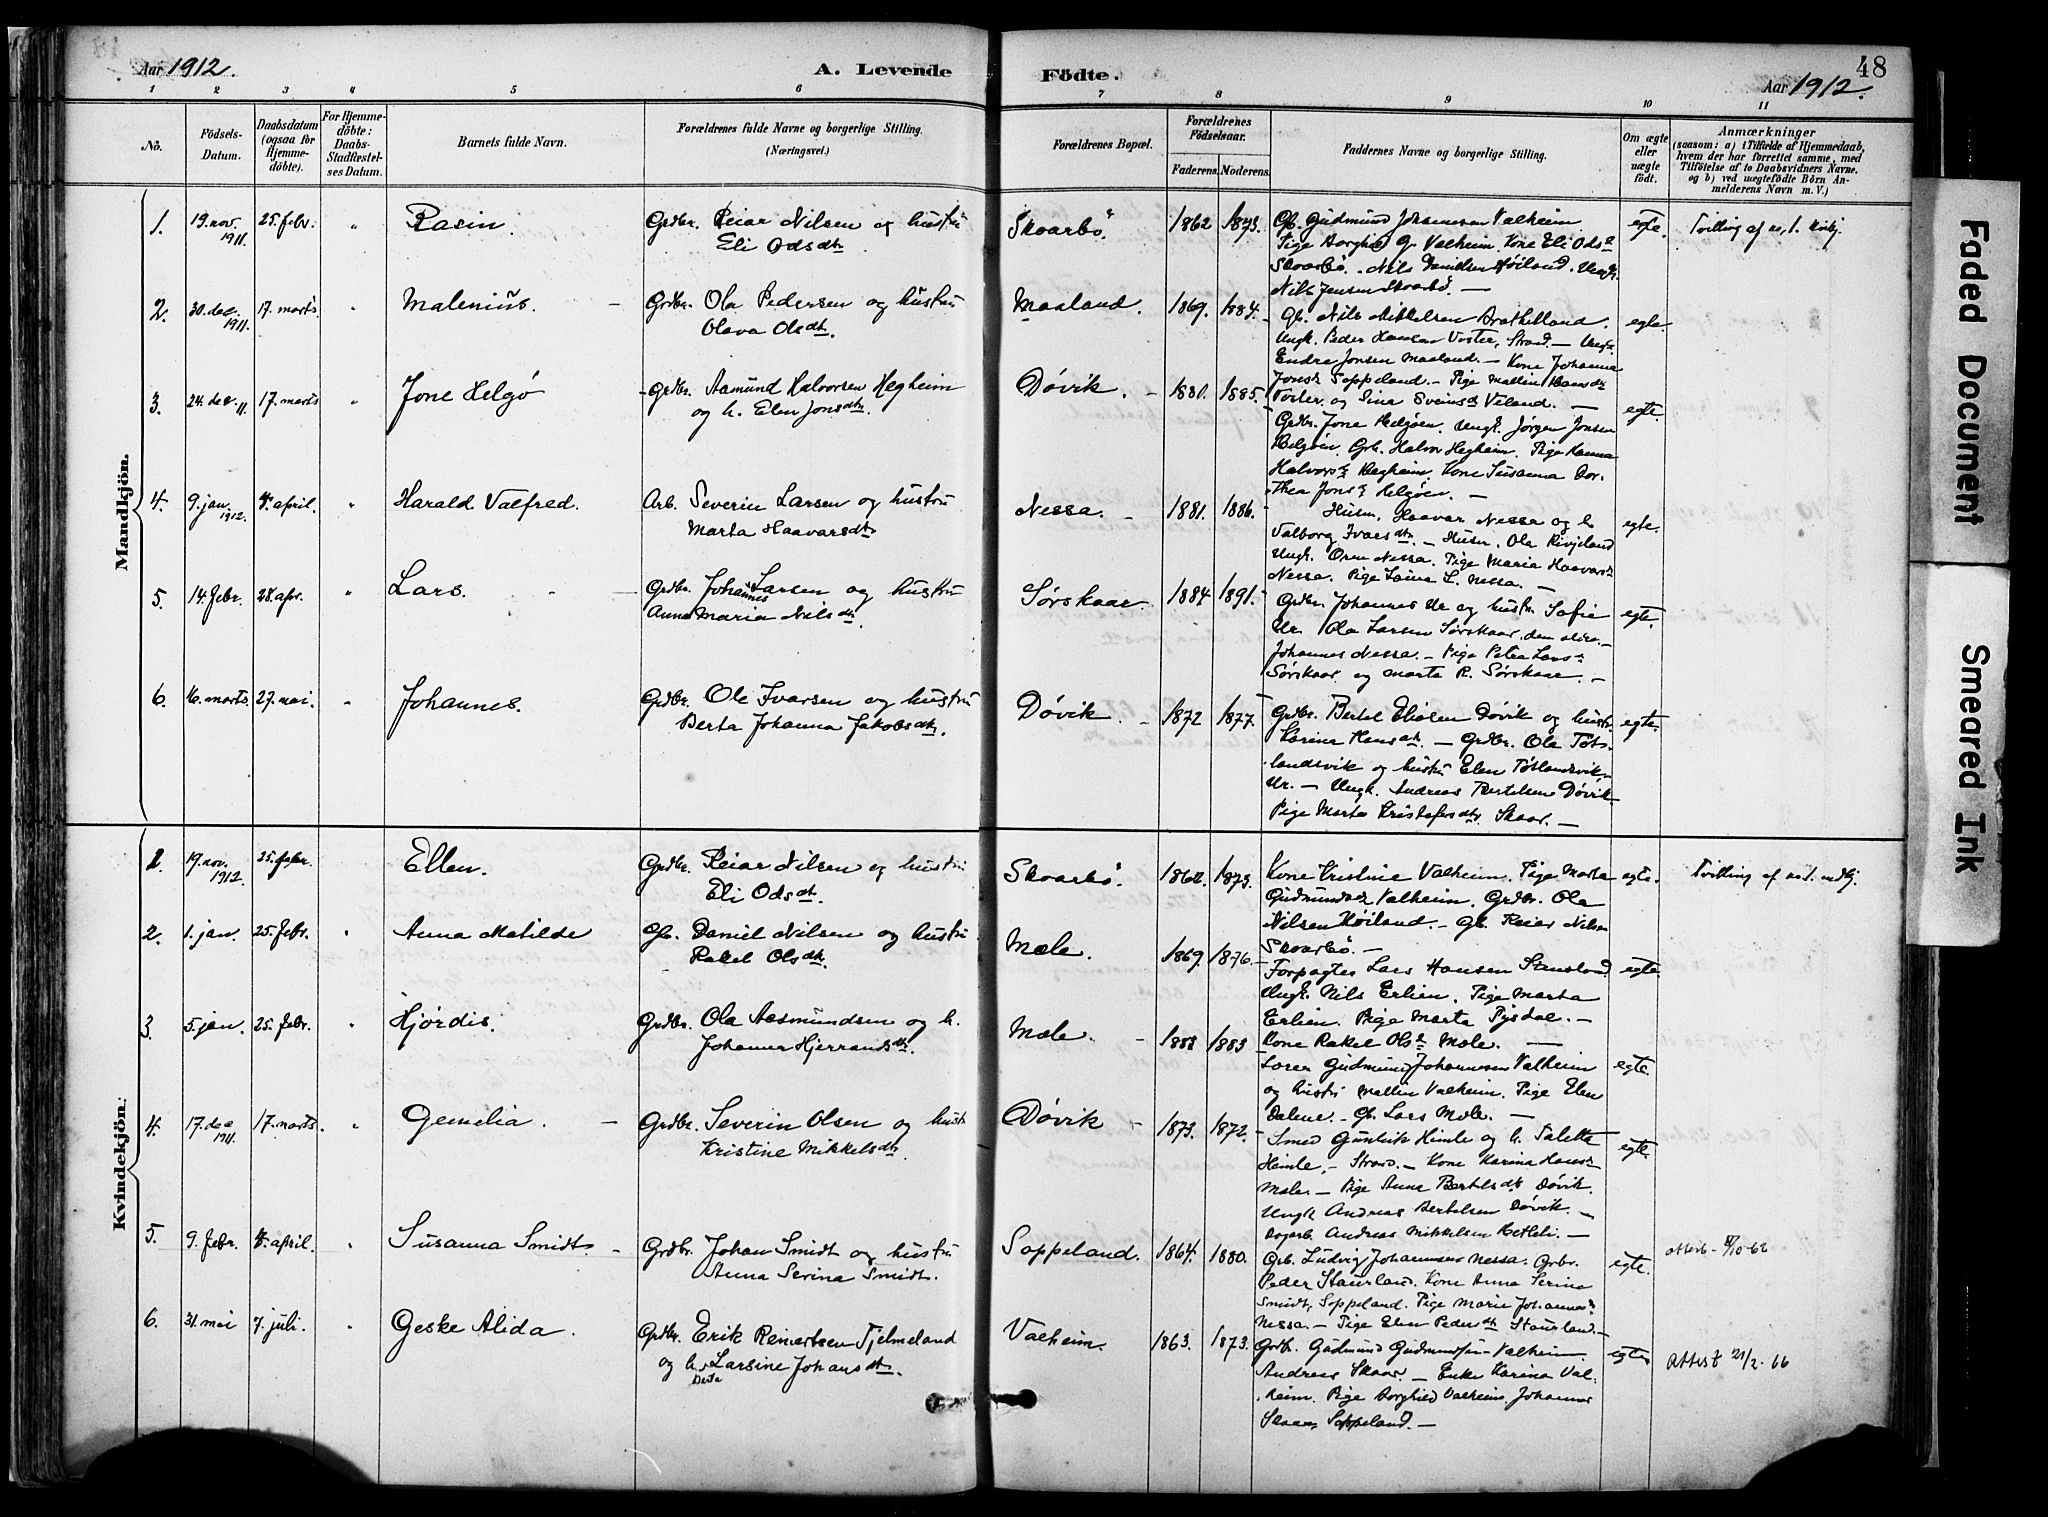 Aar 1912.
A. Levende
Födte.
Aar 1912.
48
1 2 3 4 5 6 7 8 9 10 11
No.
Födsels-
Datum.
Daabsdatum
(ogsaa for
Hjemme-
döbte).
For Hjemme-
döbte:
Daabs-
Stadfæstel-
ses Datum.
Barnets fulde Navn.
Forældrenes fulde Navne og borgerlige Stilling.
(Næringsvei.)
Forældrenes Bopæl.
Forældrenes
Födselsaar.
Faderens. Moderens.
Faddernes Navne og borgerlige Stilling.
Om ægte
eller
uægte
födt.
Anmærkninger
(saasom: a) i Tilfælde af Hjemmedaab,
hvem der har forrettet samme, med
Tilföielse af to Daabsvidners Navne.
og b) ved uægtefödte Börn An-
melderens Navn m. V.)
Mandkjön.
1. 19. nov. 1911. 25. febr. " Rasin. Grdbr. Reiar Nilsen og hustru
Eli Odsdtr.
Skoarbø. 1862 1873. Gb. Gudmund Johannesen Valheim
Pige Borghild G. Valheim, Kone Eli Ods
Skoarbø. Nils Danielsen Høiland. Ungk.
Nils Jensen Skoarbø. —
egte. Tvilling af no. 1. kvkj.
2. 30. dec. 1911. 17. marts. " Malenius. Grdbr. Ola Pedersen og hustru
Olava Olsdtr
Maaland 1869. 1884. Gb. Nils Mikkelsen
Ungk. Peder Hansen Voster, Strand — Ungk.
Endre Jonsen Maaland. — Kone Johanna
Jonsd. Soppeland. — Pige Mallin Hansdtr
Voster og Sina Sveinsd. Veland. —
egte.
3. 24. dec. 11. 17. marts " Jone Helgø Grdbr. Aamund Halvorsen Hegheim
og h. Elen Jonsdtr.
Døvik. 1880. 1885. Grdbr. Jone Helgøen. Ungk. Jørgen Jonsen
Helgøen. Grb. Halvor Hegheim. Pige Hanna
Halvorsd. Hegheim. Kone Susanna Dor-
thea Jonsd. Helgøen. —
egte.
4. 9. jan. 1912. 8. april. " Harald Valfred. Arb. Severin Larsen og hustru
Marta Haavarsdtr
Nessa. 1881. 1886. Husm. Haavar Nessa og h.
Valborg Ivarsdtr. — Husm. Ola Rivjeland
Ungk. Oren Nessa. Pige Maria Haavarsd.
Nessa. Pige Laura L. Nessa. —
egte.
5. 14. febr. 28. apr. " Lars. Grdbr. Johannes Larsen og hustru
Anna Maria Nilsdtr.
Sørskaar. 1884 1891. Grdbr. Johannes Ur og hustru Sofie
Ur. Ola Larsen Sørskaar, den eldre. —
Johannes Nessa. — Pige Petra Larsd.
Sørskaar og Marta R. Sørskaar. —
egte.
6. 16. marts. 27. mai. " Johannes. Grdbr. Ole Ivarsen og hustru
Berta Johanna Jakobsdtr.
Døvik. 1872 1877. Grdbr. Bertel Eliasen Døvik og hustru
Karina Hansdtr. — Grdbr. Ola Tøt-
landsvik og hustru Elen Tøtlandsvik
Ur. — Ungk. Andreas Bertelsen Døvik
Pige Marta Kristofersdtr. Skaar. —
egte.
Kvindekjön.
1. 19. nov. 1912. 25. febr. Ellen. Grdbr. Reiar Nilsen og hustru
Eli Odsdtr.
Skoarbø. 1862. 1873. Kone Kristine Valheim. Pige Marta
Gudmundsd. Valheim. Grdbr. Ola
Nilsen Høiland. — Gb. Reier Nilsen
Skoarbø. —
egte. Tvilling af no. 1. mdkj.
2. 1. jan. 25. febr. " Anna Matilde Gb. Daniel Nilsen og hustru
Rakel Olsdtr.
Mæle. 1869. 1876. Forpagter Lars Hansen
Ungk. Nils Erlien. Pige Marta
Erlien. Pige Marta Tysdal. —
Kone Rakel Olsd. Mæle. —
egte.
3. 5. jan. 25. febr. " Hjørdis. Grdbr. Ola Aasmundsen og h.
Johanna Hjerrandsdtr.
Mæle. 1883 Lærer Gudmund Johannesen Valheim
og hustru Mallin Valheim. Pige Elen
Dalene. — Gb. Lars Mæle. —
egte.
4. 17. dec 1911. 17. marts. " Gemelia. Grdbr. Severin Olsen og hust.
Kristine Mikkelsdtr.
Døvik 1873. 1872. Smed Gunleik Himle og h. Taletta
Himle. — Strand. — Kone Karina Hansd.
Mæle — Pige Anna Bertelsdtr Døvik.
Ungk Andreas Bertelsen Døvik. —
Dagarb. Andreas Mikkelsen Betleli. —
egte.
5. 9. febr. 8. april. " Susanna Smidt Grdbr. Johan Smidt og hustru
Anna Serina Smidt.
Soppeland. 1864. 1880. Grb. Ludvig Johannesen Nessa. Grbr.
Peder Staurland. Kone Anna Serine
Smidt, Soppeland. Pige Marie Johannesd.
Nessa. — Pige Elen Pedersdtr Staurland. —
egte. Attest
6. 31. mai 7. juli. " Geske Alida. Grdbr. Erik Reinertsen Tjelmeland
og h. Berta Larsine Johansdtr.
Valheim. 1863. 1873. Grdb. Gudmund Gudmundsen Valheim.
Andreas Skaar. — Enke Karina Val-
heim. Pige Borghild Valheim. Johanna
Skaar, Soppeland. —
egte Attest 21/2-66
Faded Document
Smeared Ink